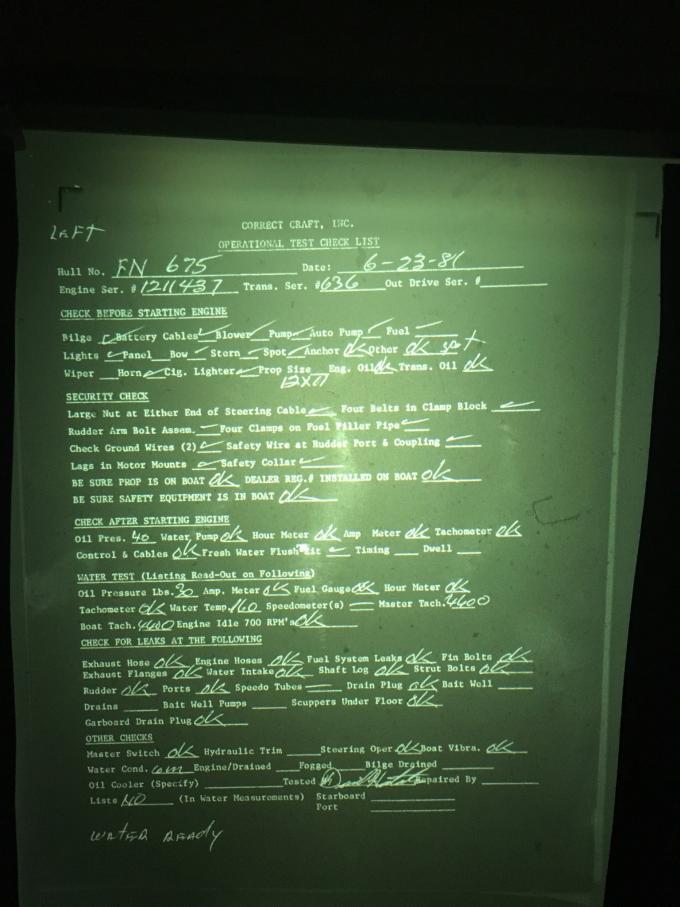 LEFT
CORRECT CRAFT, INC.
OPERATIONAL TEST CHECK LIST
Hull No. FN 675 Date: 6-23-81
Engine Ser. # 1211437 Trans. Ser. #636 Out Drive Ser. #
CHECK BEFORE STARTING ENGINE
Bilge ✓ Battery Cables ✓ Blower ✓ Pump ✓ Auto Pump ✓ Fuel ✓
Lights ✓ Panel Bow ✓ Stern ✓ Spot ✓ Anchor ok Other ok
Wiper Horn ✓ Cig. Lighter ✓ Prop Size Eng. Oil ok Trans. Oil ok
SECURITY CHECK
Large Nut at Either End of Steering Cable ✓ Four Belts in Clamp Block ✓
Rudder Arm Bolt Assem. ✓ Four Clamps on Fuel Filler Pipe ✓
Check Ground Wires (2) ✓ Safety Wire at Rudder Port & Coupling ✓
Lags in Motor Mounts ✓ Safety Collar ✓
BE SURE PROP IS ON BOAT ok DEALER REG.# INSTALLED ON BOAT ok
BE SURE SAFETY EQUIPMENT IS IN BOAT ok
CHECK AFTER STARTING ENGINE
Oil Pres. 40 Water Pump ok Hour Meter ok Amp Meter ok Tachometer ok
Control & Cables ok Fresh Water Flush Kit ✓ Timing Dwell
WATER TEST (Listing Read-Out on Following)
Oil Pressure Lbs. 30 Amp. Meter ok Fuel Gauge ok Hour Meter ok
Tachometer ok Water Temp. 160 Speedometer(s) Master Tach. 4400
Boat Tach. 4400 Engine Idle 700 RPM's ok
CHECK FOR LEAKS AT THE FOLLOWING
Exhaust Hose ok Engine Hoses ok Fuel System Leaks ok Fin Bolts ok
Exhaust Flanges ok Water Intake ok Shaft Log ok Strut Bolts ok
Rudder ok Ports ok Speedo Tubes Drain Plug ok Bait Well
Drains Bait Well Pumps Scuppers Under Floor ok
Garboard Drain Plug ok
OTHER CHECKS
Master Switch ok Hydraulic Trim Steering Oper. ok Boat Vibra. ok
Water Cond. Engine/Drained Fogged Bilge Drained
Oil Cooler (Specify) Tested By Repaired By
Lists NO (In Water Measurements) Starboard
Port
WATER READY